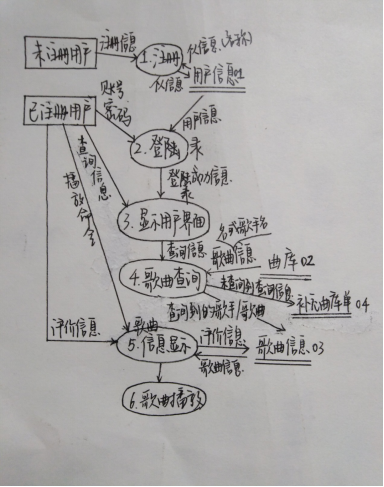 未注册用户
注册信息
1.注册
仪信息(名称)
仪信息
用户信息01
已注册用户
账号
密码
用户信息
2.登陆
录
查询信息
播放命令
登陆成功信息
录
3.显示用户界面
查询信息
名或歌手名
歌曲信息
曲库02
4.歌曲查询
未查询到查询信息
补充曲库单04
查询到的歌手/歌曲
评价信息
歌曲
5.信息显示
评价信息
歌曲信息
歌曲信息03
6.歌曲播放